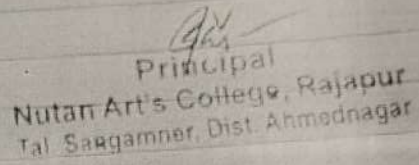 Principal
Nutan Art's College, Rajapur
Tal. Sangamner, Dist. Ahmednagar